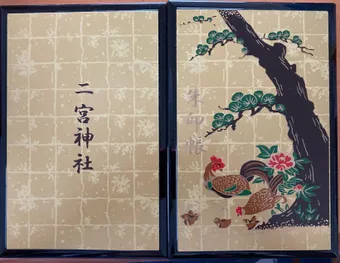 二宮神社
朱印帳